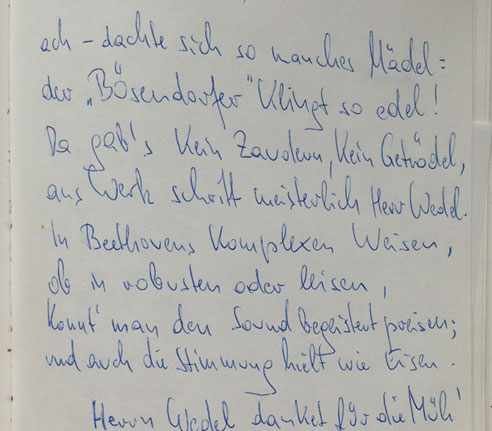 ach – dachte sich so manches Mädel:
der „Bösendorfer" klingt so edel!
Da gab's kein Zaudern, kein Getrödel,
ans Werk schritt meisterlich Herr Wedel.
In Beethovens komplexen Weisen,
ob in robusten oder leisen,
konnt' man den Sound begeistert preisen;
und auch die Stimmung hielt wie Eisen.
Herrn Wedel danket für die Müh'